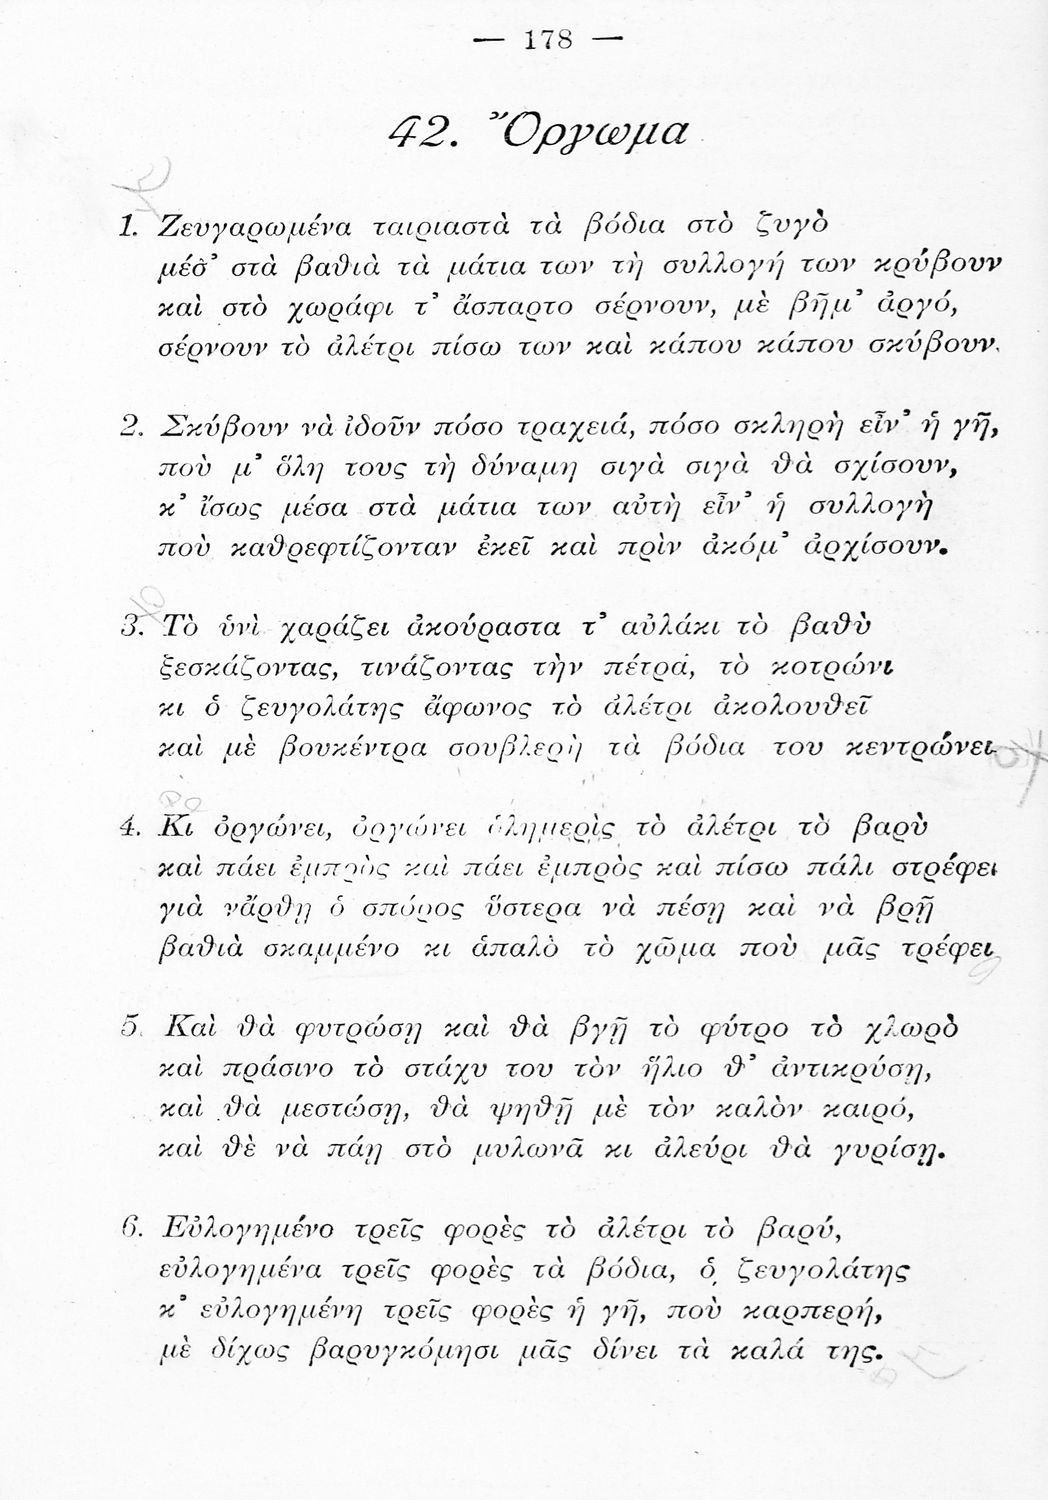 — 178 —
42. Ὄργωμα
1. Ζευγαρωμένα ταιριαστὰ τὰ βόδια στὸ ζυγὸ
μέσ' στὰ βαθιὰ τὰ μάτια των τὴ συλλογή των κρύβουν
καὶ στὸ χωράφι τ' ἄσπαρτο σέρνουν, μὲ βῆμ' ἀργό,
σέρνουν τὸ ἀλέτρι πίσω των καὶ κάπου κάπου σκύβουν.
2. Σκύβουν νὰ ἰδοῦν πόσο τραχειά, πόσο σκληρὴ εἶν' ἡ γῆ,
ποὺ μ' ὅλη τους τὴ δύναμη σιγὰ σιγὰ θὰ σχίσουν,
κ' ἴσως μέσα στὰ μάτια των αὐτὴ εἶν' ἡ συλλογὴ
ποὺ καθρεφτίζονταν ἐκεῖ καὶ πρὶν ἀκόμ' ἀρχίσουν.
3. Τὸ ὑνὶ χαράζει ἀκούραστα τ' αὐλάκι τὸ βαθὺ
ξεσκάζοντας, τινάζοντας τὴν πέτρα, τὸ κοτρώνι
κι ὁ ζευγολάτης ἄφωνος τὸ ἀλέτρι ἀκολουθεῖ
καὶ μὲ βουκέντρα σουβλερὴ τὰ βόδια του κεντρώνει.
4. Κι ὀργώνει, ὀργώνει ὁλημερὶς τὸ ἀλέτρι τὸ βαρὺ
καὶ πάει ἐμπρὸς καὶ πάει ἐμπρὸς καὶ πίσω πάλι στρέφει
γιὰ νἄρθῃ ὁ σπόρος ὕστερα νὰ πέσῃ καὶ νὰ βρῇ
βαθιὰ σκαμμένο κι ἁπαλὸ τὸ χῶμα ποὺ μᾶς τρέφει
5. Καὶ θὰ φυτρώσῃ καὶ θὰ βγῇ τὸ φύτρο τὸ χλωρὸ
καὶ πράσινο τὸ στάχυ του τὸν ἥλιο θ' ἀντικρύσῃ,
καὶ θὰ μεστώσῃ, θὰ ψηθῇ μὲ τὸν καλὸν καιρό,
καὶ θὲ νὰ πάῃ στὸ μυλωνᾶ κι ἀλεύρι θὰ γυρίσῃ.
6. Εὐλογημένο τρεῖς φορὲς τὸ ἀλέτρι τὸ βαρύ,
εὐλογημένα τρεῖς φορὲς τὰ βόδια, ὁ ζευγολάτης
κ' εὐλογημένη τρεῖς φορὲς ἡ γῆ, ποὺ καρπερή,
μὲ δίχως βαρυγκόμησι μᾶς δίνει τὰ καλά της.